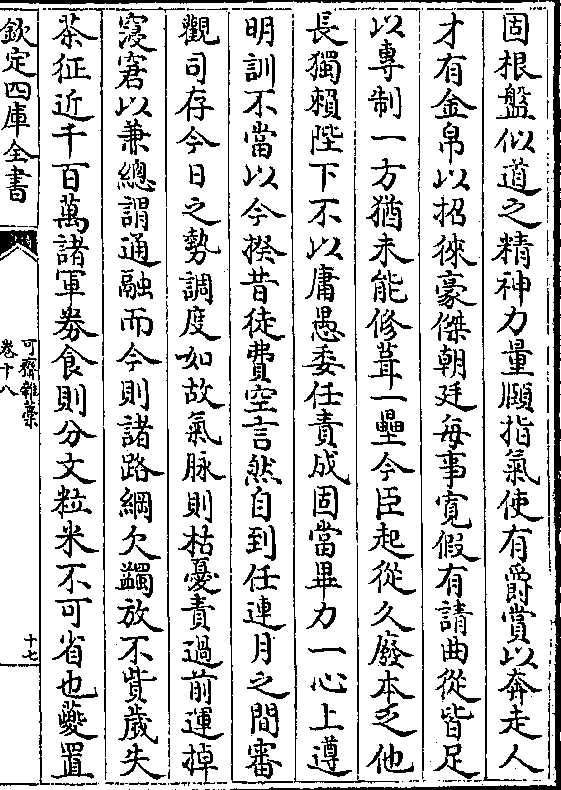 固根盤似道之精神力量頤指氣使有爵賞以奔走人
才有金帛以招徠豪傑朝廷每事寛假有請曲從皆足
以專制一方猶未能修葺一壘今臣起從久廢本乏他
長獨賴陛下不以庸愚委任責成固當畢力一心上遵
明訓不當以今揆昔徒費空言然自到任連月之間審
觀司存今日之勢調度如故氣脉則枯憂責過前運掉
窘以兼總謂通融而今則諸路綱欠蠲放不貲歲失
茶征近千百萬諸軍劵食則分文粒米不可省也夔置
欽定四庫全書
可齋雜藁
卷十八
十七